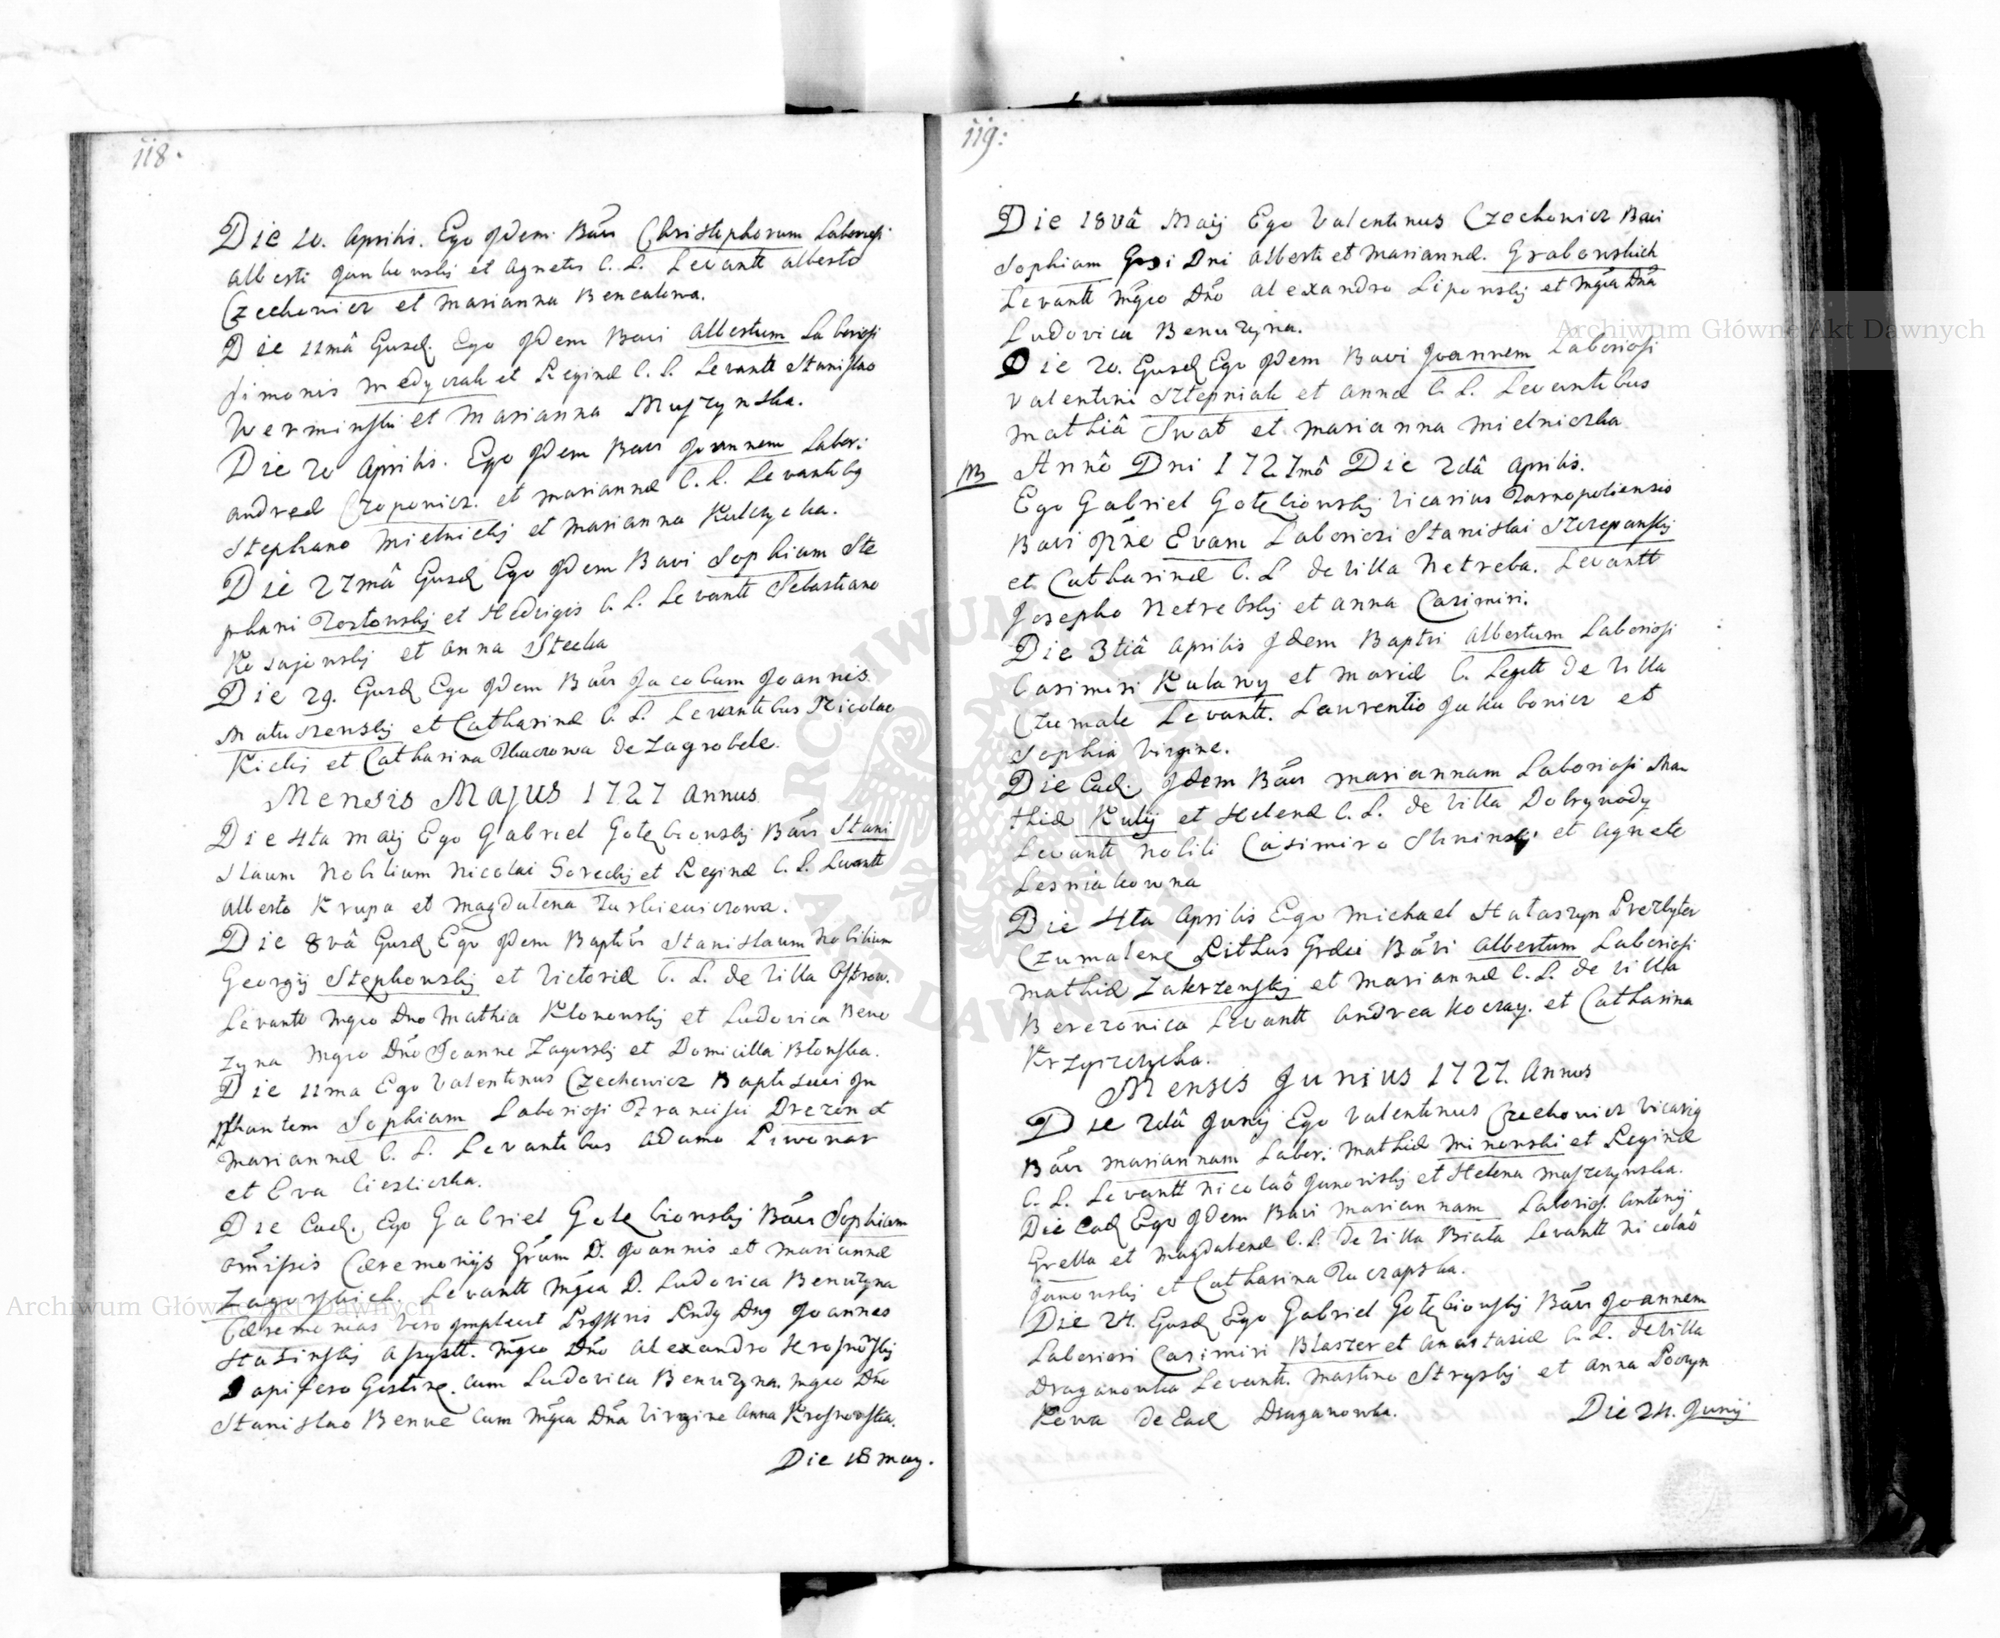 118.
Die 10. Aprilis. Ego Idem Bavi Christophorum Laboriosi
Alberti et Agnetis C. L. Levantt Alberto
Czechowicz et Marianna Bencalowa.
Die 11mâ Eiusd. Ego Idem Bavi Albertum Laboriosi
Simonis Medyczak et Reginæ C. L. Levantt Stanislao
Werminski et Marianna Muszynska.
Die 20 Aprilis. Ego Idem Bavi Joannem Labor:
Andreæ Czopowicz. et Mariannæ C. L. Levantibq
Stephano Mielnickj et Marianna Kulczycka.
Die 27mâ Eiusd Ego Idem Bavi Sophiam Ste
phani et Hedvigis C. L. Levantt Sebastiano
et Anna Stecka
Die 29. Eiusd Ego Idem Bavi Jacobum Joannis
Matuszewskj et Catharinæ C. L. Levantibus Nicolao
Kickj et Catharina Tkaczowa de Zagrobele.
Mensis Majus 1727 Annus
Die 4ta Maij Ego Gabriel Gołębiowskj Bavi Stani
slaum Nobilium Nicolai Goreckj et Reginæ C. L. Levantt
Alberto Krupa et Magdalena Turkiewiczowa.
Die 8vâ Eiusd Ego Idem Baptivi Stanislaum Nobilium
Georgij Stepkowskj et Victoriæ C. L. de Villa Ostrow.
Levantt Mgco Dno Mathia Klonowskj et Ludovica Bene
zyna Mgco Dno Joanne Zagorskj et Domicilla Błonska.
Die 11ma Ego Valentinus Czechowicz Baptisavi In
phantem Sophiam Laboriosi Francisci Drezen et
Mariannæ C. L. Levantibus Adamo Piwowar
et Eva Ciesliczka.
Die Ead. Ego Gabriel Gołębiowskj Bavi Sophiam
omissis Cæremonijs Grsum D. Joannis et Mariannæ
Zagorskich. Levantt Mgca D. Ludovica Benuzyna
Cæremonias vero Joannes
Mgco Dno Alexandro
Dapifero cum Ludovica Benuzyna. Mgco Dno
Stanislao Benue cum Mgca Dna Virgine Anna Krosnowska.
Die 18 May.
119:
Die 18vâ Maij Ego Valentinus Czechowicz Bavi
Sophiam Grsi Dni Alberti et Mariannæ. Grabowskich
Levantt Mgco Dno Alexandro Lipowskj et Mgca Dna
Ludovica Benuzyna.
Die 20. Eiusd Ego Idem Bavi Joannem Laboriosi
Valentini Stepniak et Annæ C. L. Levantibus
Mathiâ Swat et Marianna Mielniczka
NB Annô Dni 1727mô Die 2dâ Aprilis.
Ego Gabriel Gołębiowskj Vicarius Tarnopoliensis
Bavi Evam Laboriosi Stanislai Szczepanskj
et Catharinæ C. L de Villa Netreba. Levantt
Josepho Netrebskj et Anna Casimiri.
Die 3tiâ Aprilis Idem Baptvi Albertum Laboriosi
Casimiri Kulawy et Mariæ C. Legitt de Villa
Czumale Levantt. Laurentio Jakubowicz et
Sophia Virgine.
Die Ead. Idem Bavi Mariannam Laboriosi Ma
thiæ Kulij et Helenæ C. L. de Villa Dobrywody
Levantt Nobili Casimiro et Agnete
Lesniakowna
Die 4ta Aprilis Ego Michael Hałaszyn Prezbyter
Czumalens Rithus Græci Bavi Albertum Laboriosi
Mathiæ Zakrzewskj et Mariannæ C. L. de Villa
Berezovica Levantt Andrea Koczay. et Catharina
Mensis Junius 1727. Annus
Die 2dâ Junij Ego Valentinus Czechowicz Vicariq
Bavi Mariannam Labor: Mathiæ Minowski et Reginæ
C. L. Levantt Nicolaô Janowiskj et Helena Maszczynska.
Die Ead Ego Idem Bavi Mariannam Laborios. Antonij
Grella et Magdalenæ C. L. de Villa Biała Levantt Nicolaô
Janowskj et Catharina
Die 24. Eiusd Ego Gabriel Gołębiowskj Bavi Joannem
Laboriosi Casimiri Blaszer et Anastasiæ C. L. de Villa
Draganowka Levantt. Martino Stryskj et Anna Poczyn
kowa de Ead Draganowka.
Die 24. Junij